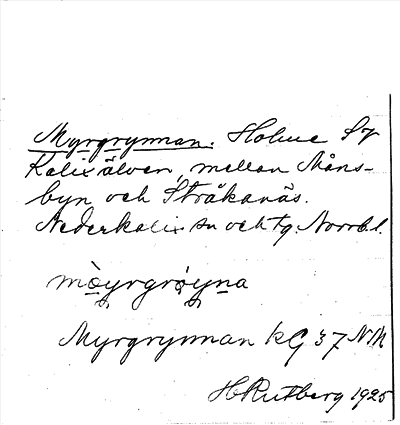 Myrgrynnan. Holme i
Kalix älven, mellan Måns-
byn och Stråkanäs.
Nederkalix sn och tg. Norrb. l.
mòyrgrøyna
Myrgrynnan KG 37 NM
H Rutberg 1925